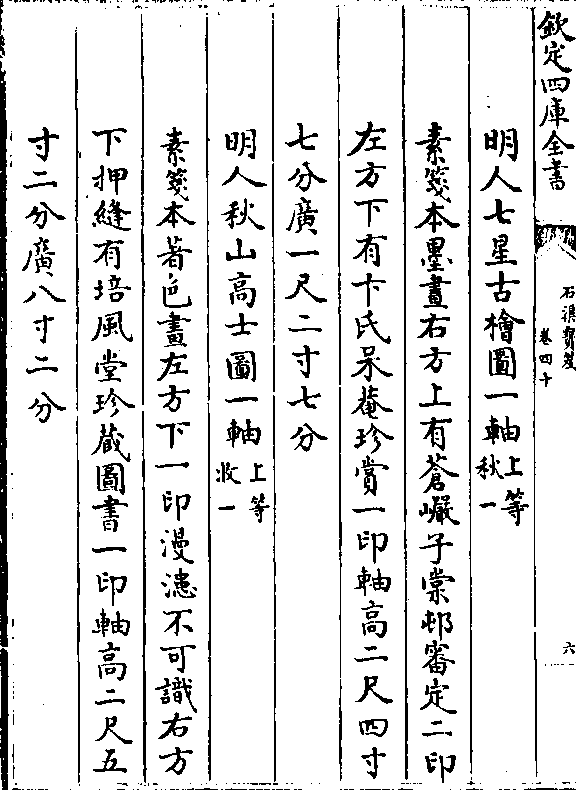 欽定四庫全書
石渠寳笈
卷四十
六
明人七星古檜圖一軸上等
秋一
素箋本墨畫右方上有蒼巖子棠邨審定二印
左方下有卞氏呆菴珍賞一印軸高二尺四寸
七分廣一尺二寸七分
明人秋山高士圖一軸上等
收一
素箋本著色畫左方下一印漫漶不可識右方
下押縫有培風堂珍蔵圖書一印軸高二尺五
寸二分廣八寸二分